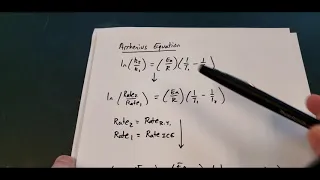 Arrhenius Equation
ln(k₂/k₁) = (Ea/R)(1/T₁ - 1/
ln(Rate₂/Rate₁) = (Ea/R)(1/T₁ - 1/T₂)
Rate₂ = Rate R.T.
Rate₁ = Rate ICE